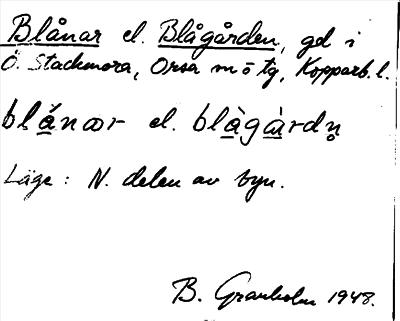 Blånar el. Blågården, gd i
Ö. Stackmora, Orsa sn o tg, Kopparb. l.
blånær el. blàgàrdn̥
Läge: N. delen av byn.
B. Granholm 1948.